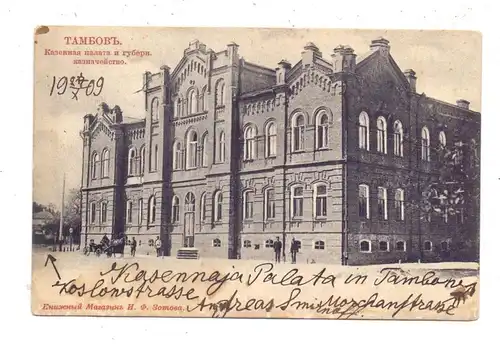 ТАМБОВЪ.
Казенная палата и губерн.
казначейство.
19 24/X 09
Kasennaja Palata in Tambow
Koslowstrasse Andreas Smirnoff
Книжный Магазинъ И. Ф. Зотова.